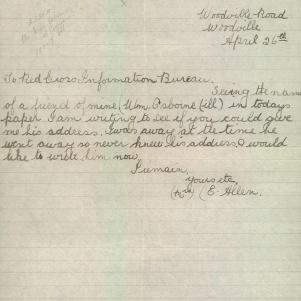 Woodville Road
Woodville
April 26th
To Red Cross Information Bureau.
Seeing the name
of a friend of mine (Wm. Osborne (ill) in todays
paper I am writing to see if you could give
me his address. I was away at the time he
went away so never knew his address, & would
like to write him now
I remain,
Yours etc,
E. Allen.